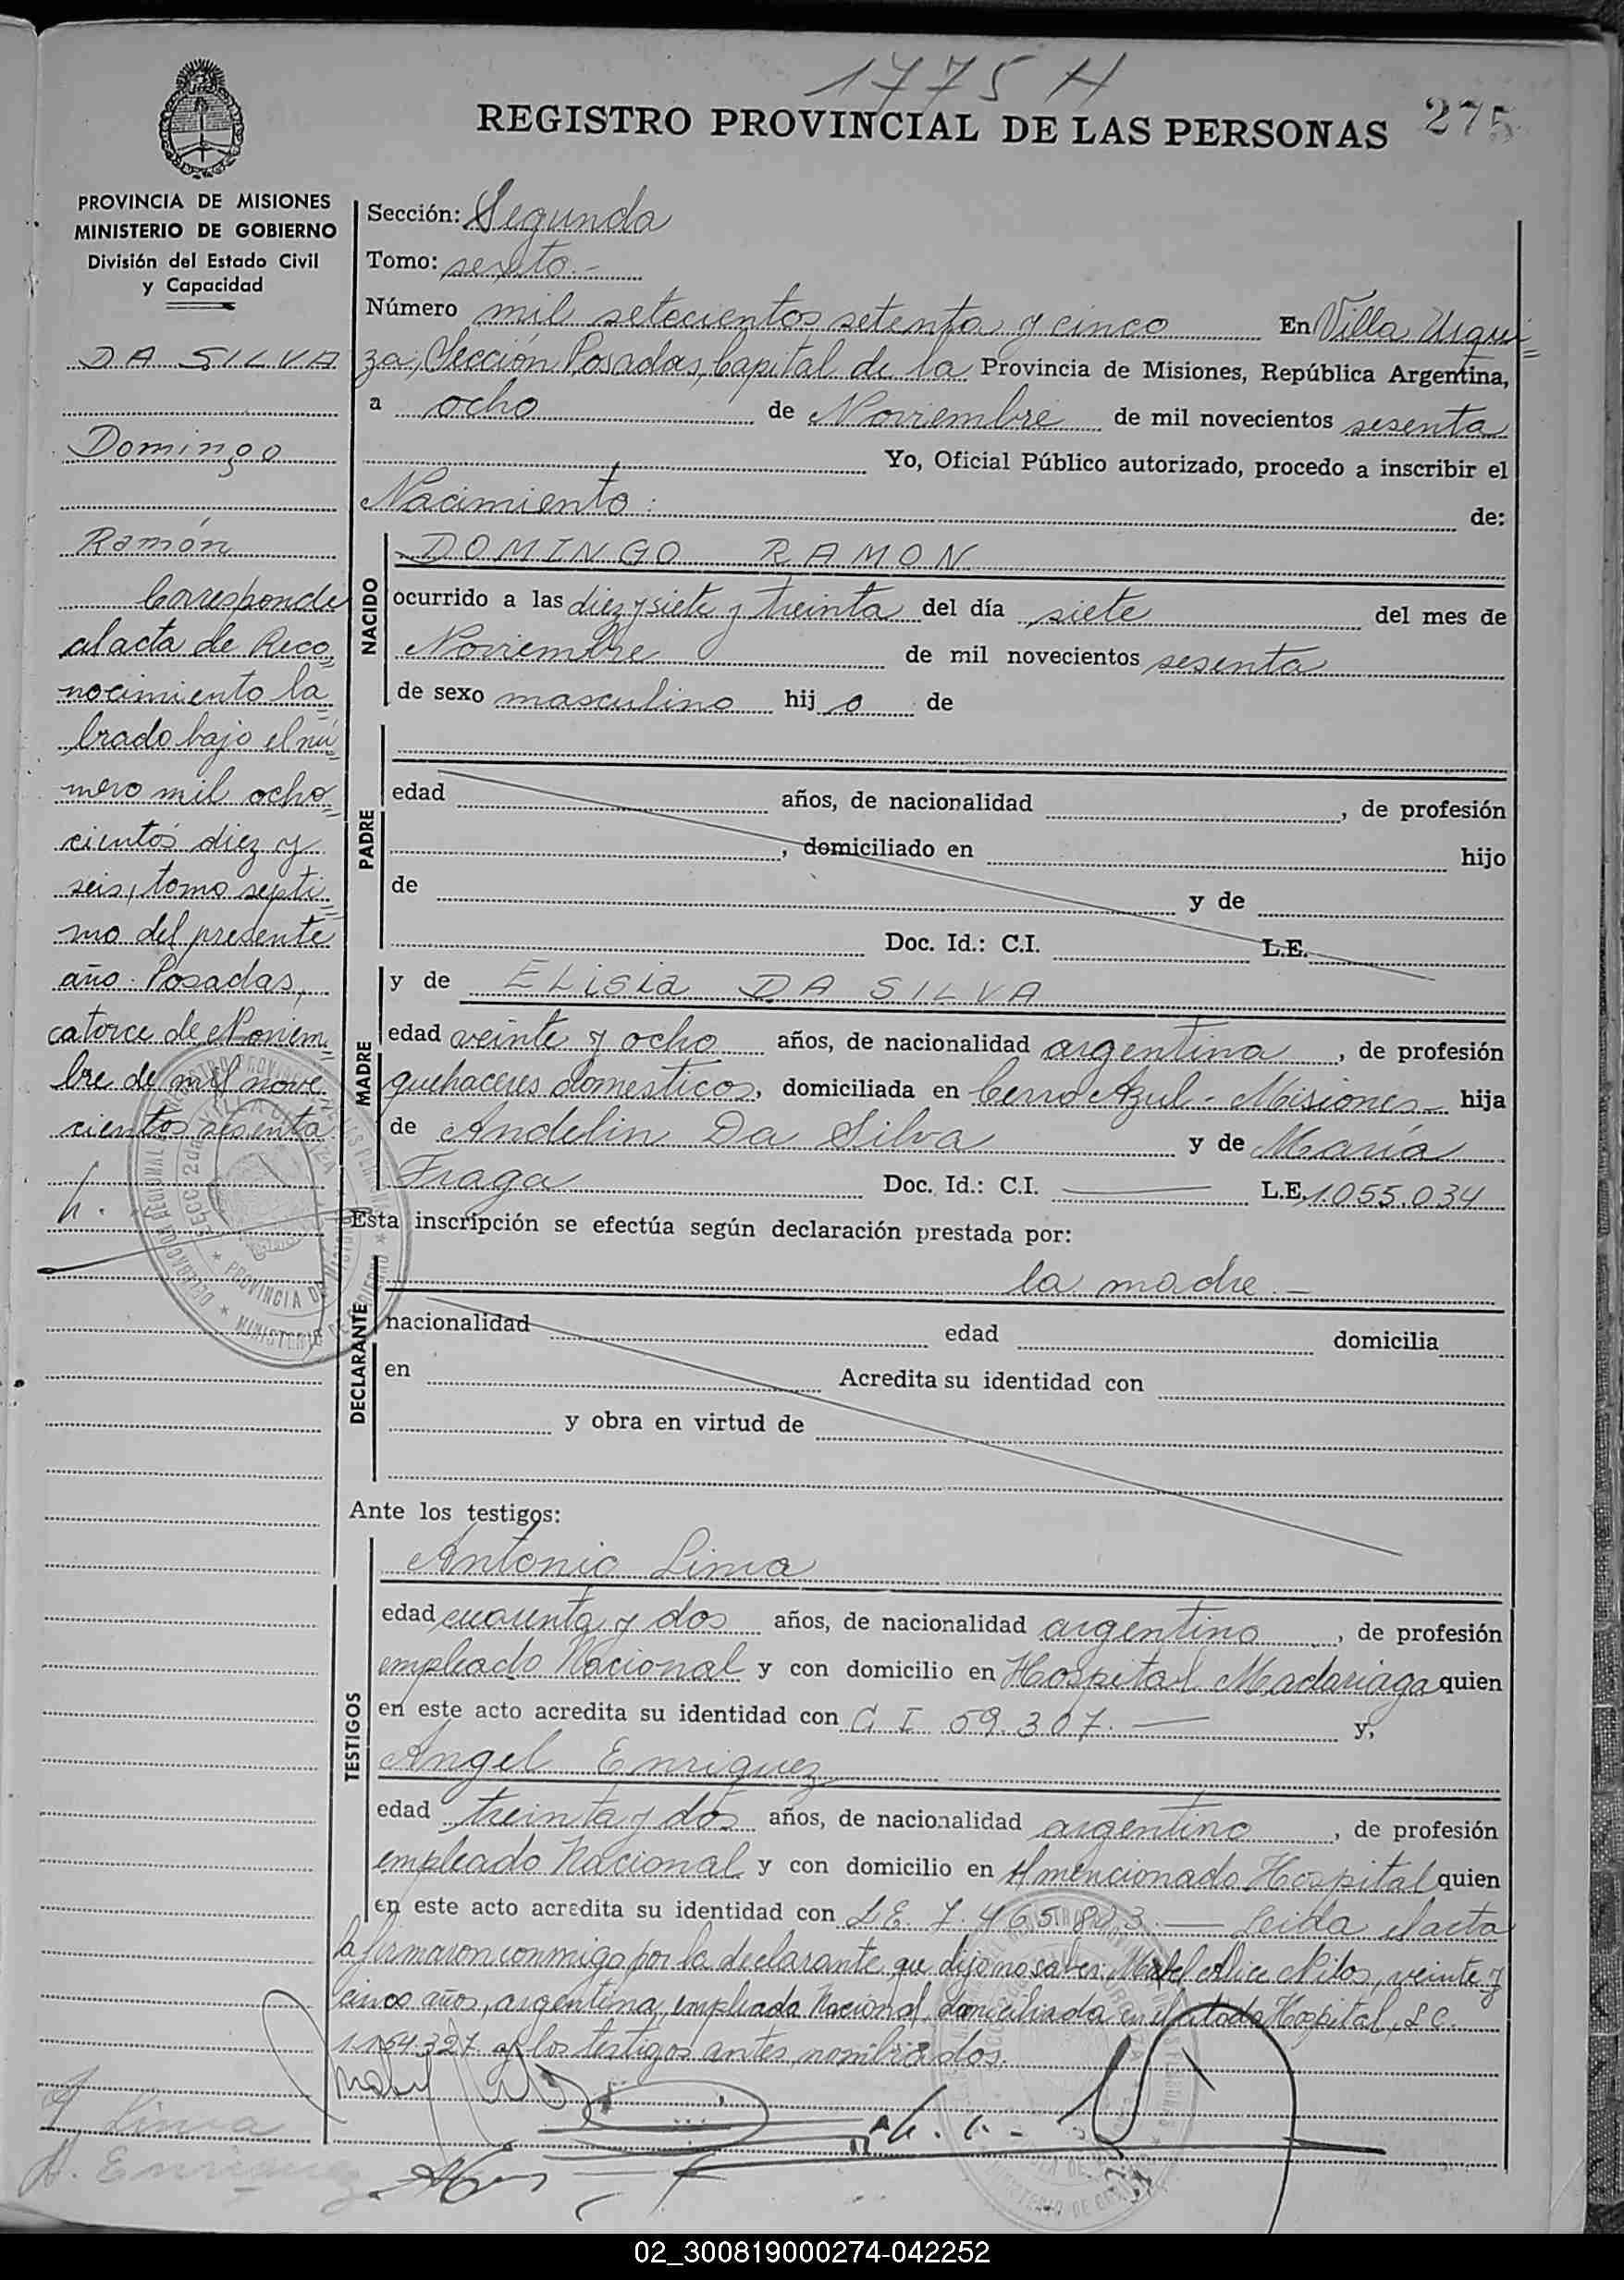 1775 H
275
REGISTRO PROVINCIAL DE LAS PERSONAS
PROVINCIA DE MISIONES
MINISTERIO DE GOBIERNO
División del Estado Civil
y Capacidad
DA SILVA
Domingo
Ramón
Corresponde
al acta de Reco=
nocimiento la=
brado bajo el nú=
mero mil ocho=
cientos diez y
seis, tomo septi=
mo del presente
año. Posadas,
catorce de Noviem=
bre de mil nove=
cientos sesenta
Sección: Segunda
Tomo: sexto.-
Número mil setecientos setenta y cinco En Villa Urqui=
za, Sección Posadas, Capital de la Provincia de Misiones, República Argentina,
a ocho de Noviembre de mil novecientos sesenta
Yo, Oficial Público autorizado, procedo a inscribir el
Nacimiento: de:
NACIDO
DOMINGO RAMON
ocurrido a las diez y siete y treinta del día siete del mes de
Noviembre de mil novecientos sesenta
de sexo masculino hij o de
PADRE
edad años, de nacionalidad , de profesión
, domiciliado en hijo
de y de
Doc. Id.: C.I. L.E.
MADRE
y de ELisia DA SILVA
edad veinte y ocho años, de nacionalidad argentina , de profesión
quehaceres domesticos, domiciliada en Cerro Azul - Misiones hija
de Andelin Da Silva y de María
Fraga Doc. Id.: C.I. — L.E. 1.055.034
Esta inscripción se efectúa según declaración prestada por:
DECLARANTE
la madre.-
nacionalidad edad domicilia
en Acredita su identidad con
y obra en virtud de
Ante los testigos:
TESTIGOS
Antonio Lima
edad cuarenta y dos años, de nacionalidad argentino , de profesión
empleado Nacional y con domicilio en Hospital Madariaga quien
en este acto acredita su identidad con C I 59.307. — y,
Angel Enriquez
edad treinta y dos años, de nacionalidad argentino , de profesión
empleado Nacional y con domicilio en el mencionado Hospital quien
en este acto acredita su identidad con L E. 7.465.823. — Leida el acta
la firmaron conmigo por la declarante que dijo no saber, Mabel Alice Pilos, veinte y
cinco años, argentina, empleada Nacional, domiciliada en el citado Hospital, L.C.
1.154.327 y los testigos antes nombrados.
A Lima
A. Enriquez
02_300819000274-042252